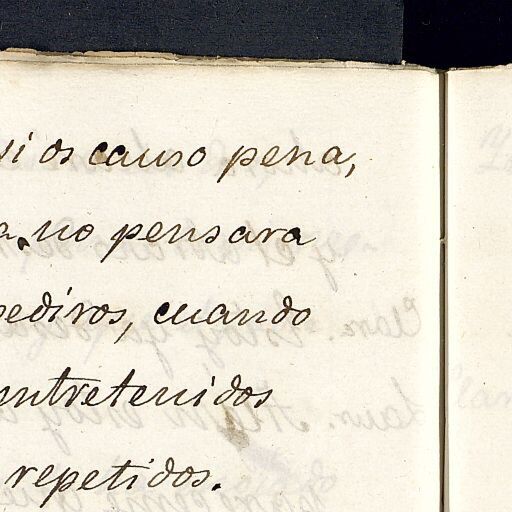 si os causo pena,
no pensara
pediros, cuando
entretenidos
repetidos.